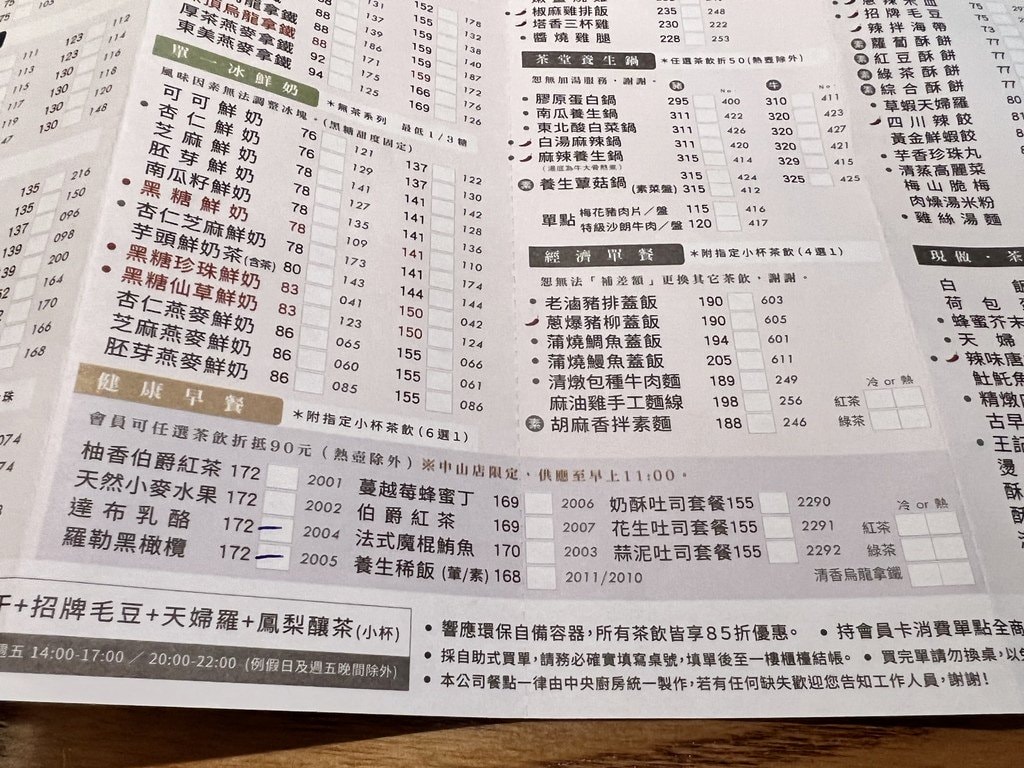 頂烏龍拿鐵 88
厚茶燕麥拿鐵 92
東美燕麥拿鐵 94
單一冰鮮奶 *無茶系列 最低1/3糖
風味因素無法調整冰塊。(黑糖甜度固定)
可可鮮奶 76 121 137 122
杏仁鮮奶 76 129 141 130
芝麻鮮奶 78 127 141 132
胚芽鮮奶 78 135 141 128
南瓜籽鮮奶 78 109 141 136
黑糖鮮奶 78 173 141 110
杏仁芝麻鮮奶 80 143 144 174
芋頭鮮奶茶(含茶) 83 041 150 144
黑糖珍珠鮮奶 83 123 150 042
黑糖仙草鮮奶 86 065 155 124
杏仁燕麥鮮奶 86 060 155 066
芝麻燕麥鮮奶 86 085 155 061
胚芽燕麥鮮奶 086
椒麻雞排飯 235 248
塔香三杯雞 230 222
醬燒雞腿 228 253
茶堂養生鍋 *任選茶飲折50(熱壺除外)
恕無加湯服務,謝謝。 豬 No 牛 No
膠原蛋白鍋 295 400 310 411
南瓜養生鍋 311 422 320 423
東北酸白菜鍋 311 426 320 427
白湯麻辣鍋 311 420 320 421
麻辣養生鍋 315 414 329 415
(湯底為牛大骨熬煮)
素 養生蕈菇鍋(素菜盤) 315 412 325 425
單點 梅花豬肉片/盤 115 416
特級沙朗牛肉/盤 120 417
經濟單餐 *附指定小杯茶飲(4選1)
恕無法「補差額」更換其它茶飲,謝謝。
老滷豬排蓋飯 190 603
蔥爆豬柳蓋飯 190 605
蒲燒鯛魚蓋飯 194 601
蒲燒鰻魚蓋飯 205 611
清燉包種牛肉麵 189 249 冷 or 熱
麻油雞手工麵線 198 256 紅茶
素 胡麻香拌素麵 188 246 綠茶
招牌毛豆 75
辣拌海帶 73
素 蘿蔔酥餅 77
素 紅豆酥餅 77
素 綠茶酥餅 77
素 綜合酥餅
草蝦天婦羅
四川辣餃
黃金鮮蝦餃
芋香珍珠丸
清蒸高麗菜
梅山脆梅
肉燥湯米粉
雞絲湯麵
現做・茶
白 飯
荷包
蜂蜜芥末
天婦
辣味唐
魠魠魚
精燉
古早
王記
燙
酥
健康早餐 *附指定小杯茶飲(6選1)
會員可任選茶飲折抵90元(熱壺除外)※中山店限定,供應至早上11:00。
柚香伯爵紅茶 172 2001 蔓越莓蜂蜜丁 169 2006 奶酥吐司套餐155 2290 冷 or 熱
天然小麥水果 172 2002 伯爵紅茶 169 2007 花生吐司套餐155 2291 紅茶
達布乳酪 172 2004 法式魔棍鮪魚 170 2003 蒜泥吐司套餐155 2292 綠茶
羅勒黑橄欖 172 2005 養生稀飯(葷/素)168 2011/2010 清香烏龍拿鐵
+招牌毛豆+天婦羅+鳳梨釀茶(小杯)
週五 14:00-17:00 / 20:00-22:00 (例假日及週五晚間除外)
• 響應環保自備容器,所有茶飲皆享85折優惠。 • 持會員卡消費單點全商
• 採自助式買單,請務必確實填寫桌號,填單後至一樓櫃檯結帳。 • 買完單請勿換桌,以
• 本公司餐點一律由中央廚房統一製作,若有任何缺失歡迎您告知工作人員,謝謝!